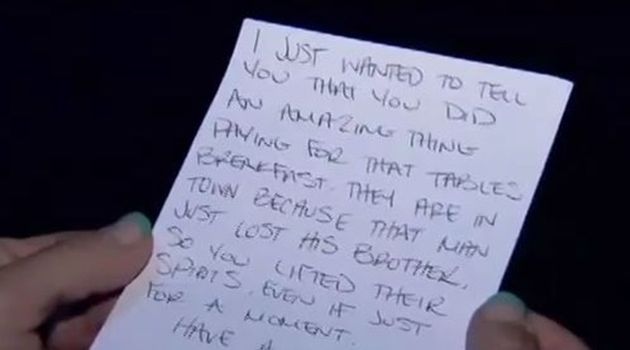 I JUST WANTED TO TELL
YOU THAT YOU DID
AN AMAZING THING
PAYING FOR THAT TABLES
BREAKFAST. THEY ARE IN
TOWN BECAUSE THAT MAN
JUST LOST HIS BROTHER.
SO YOU LIFTED THEIR
SPIRITS. EVEN IF JUST
FOR A MOMENT.
HAVE A